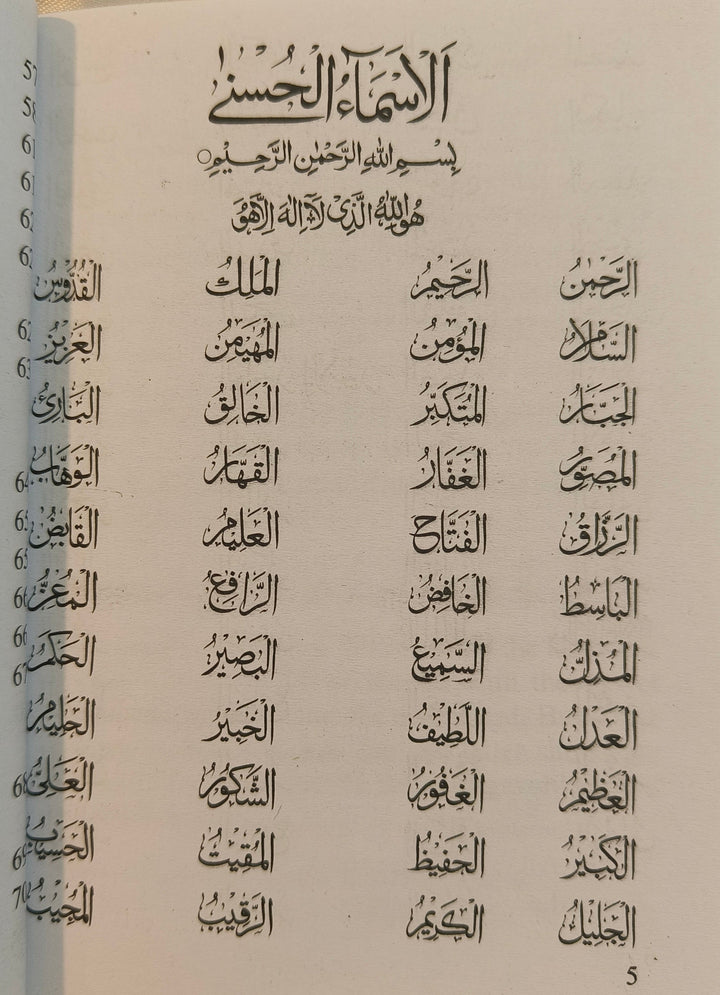 اَلْاَسْمَآءُ الْحُسْنٰى
بِسْمِ اللهِ الرَّحْمٰنِ الرَّحِيْمِ○
هُوَ اللهُ الَّذِىْ لَآ اِلٰهَ اِلَّا هُوَ
الرَّحْمٰنُ الرَّحِيْمُ الْمَلِكُ الْقُدُّوْسُ
السَّلَامُ الْمُؤْمِنُ الْمُهَيْمِنُ الْعَزِيْزُ
الْجَبَّارُ الْمُتَكَبِّرُ الْخَالِقُ الْبَارِئُ
الْمُصَوِّرُ الْغَفَّارُ الْقَهَّارُ الْوَهَّابُ
الرَّزَّاقُ الْفَتَّاحُ الْعَلِيْمُ الْقَابِضُ
الْبَاسِطُ الْخَافِضُ الرَّافِعُ الْمُعِزُّ
الْمُذِلُّ السَّمِيْعُ الْبَصِيْرُ الْحَكَمُ
الْعَدْلُ اللَّطِيْفُ الْخَبِيْرُ الْحَلِيْمُ
الْعَظِيْمُ الْغَفُوْرُ الشَّكُوْرُ الْعَلِىُّ
الْكَبِيْرُ الْحَفِيْظُ الْمُقِيْتُ الْحَسِيْبُ
الْجَلِيْلُ الْكَرِيْمُ الرَّقِيْبُ الْمُجِيْبُ
5